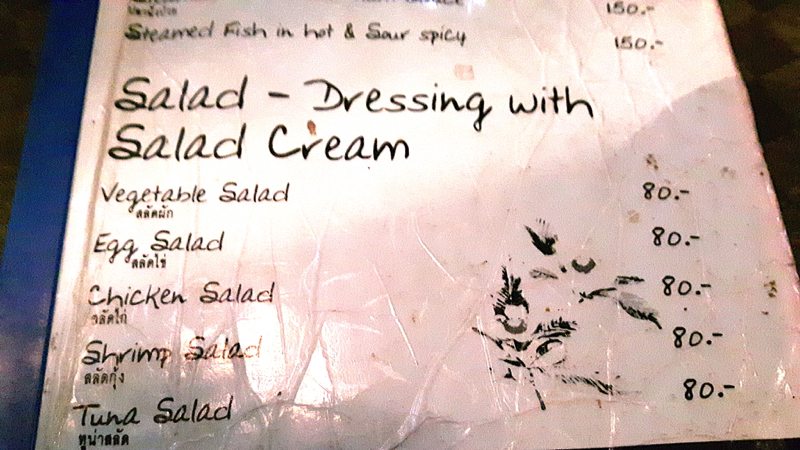 150.-
Steamed Fish in hot & Sour spicy 150.-
Salad - Dressing with
Salad Cream
Vegetable Salad 80.-
สลัดผัก
Egg Salad 80.-
สลัดไข่
Chicken Salad 80.-
สลัดไก่
Shrimp Salad 80.-
สลัดกุ้ง
Tuna Salad 80.-
ทูน่าสลัด